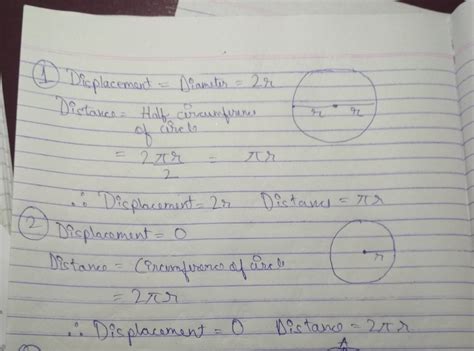 1 Displacement = Diameter = 2r
Distance = Half circumference
of circle
= 2πr/2 = πr
r r
∴ Displacement = 2r Distance = πr
2 Displacement = 0
Distance = Circumference of circle
r
= 2πr
∴ Displacement = 0 Distance = 2πr
A